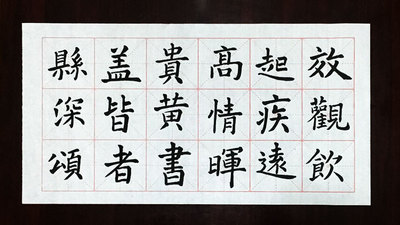 效觀飲
起疾遠
高情暉
貴黄書
盖皆者
縣深頌